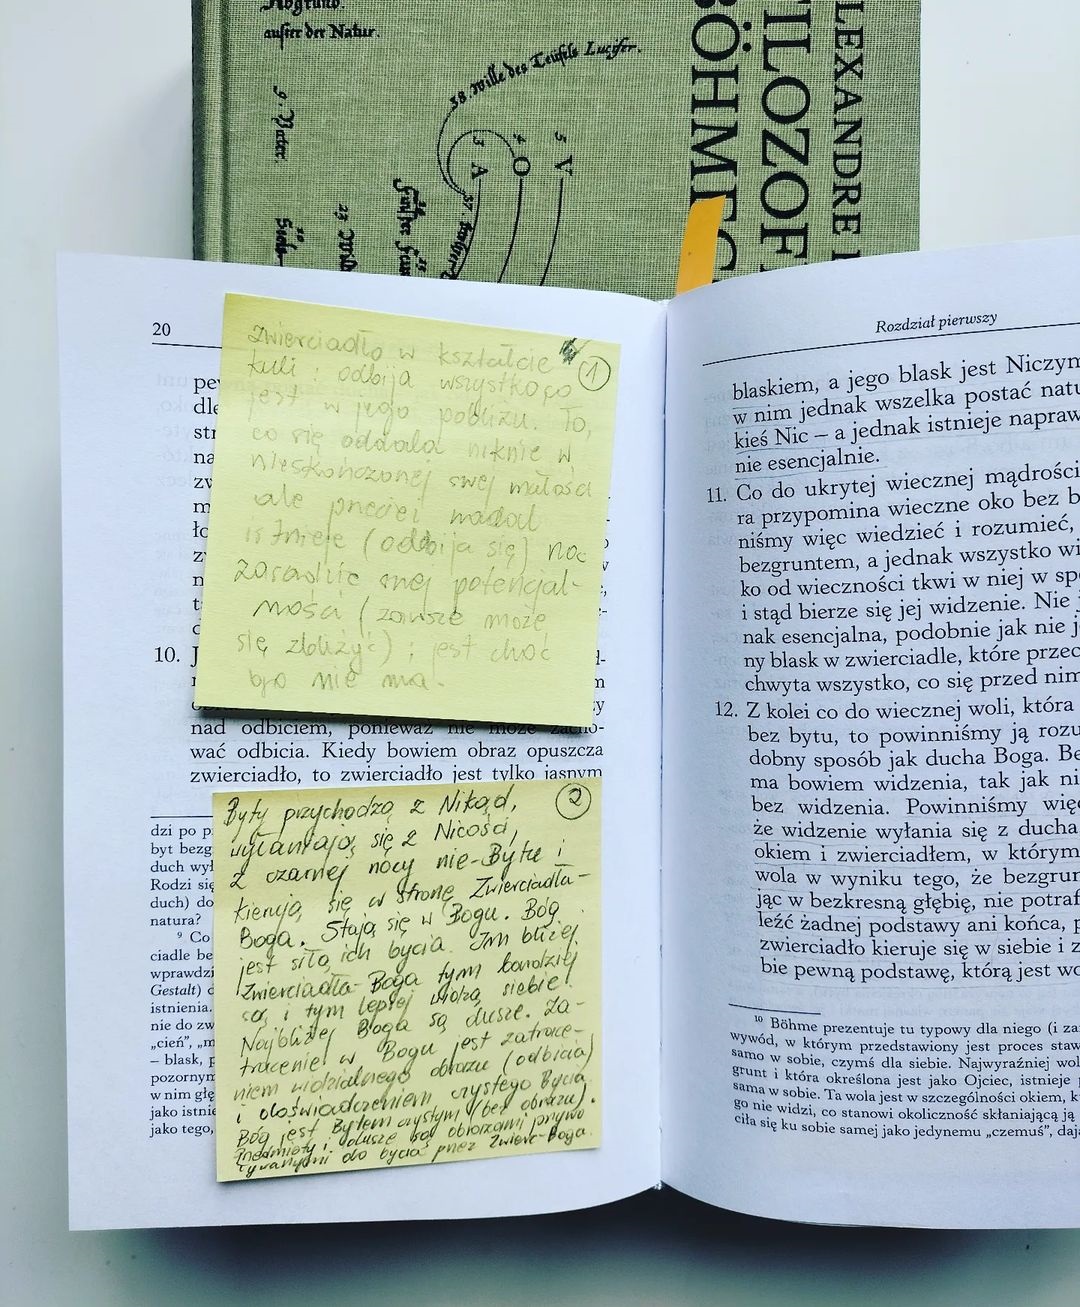 Abgrund.
außer der Natur.
9. Vater.
38. Wille des Teüfels Lucifer.
3 A
4 O
5 V
LEXANDRE
FILOZOF
BÖHME
20
Zwierciadło w kształcie
kuli: odbija wszystko co
jest w jego pobliżu. To,
co się oddala niknie w
nieskończonej swej małości
ale przecież nadal
istnieje (odbija się) na
zasadzie swej potencjal-
ności (zawsze może
się zbliżyć); jest choć
go nie ma.
1
10.
nad odbiciem, ponieważ nie może zacho-
wać odbicia. Kiedy bowiem obraz opuszcza
zwierciadło, to zwierciadło jest tylko jasnym
Byty przychodzą z Nikąd,
wyłaniają się z Nicości,
z czarnej nocy nie-Bytu i
kierują się w stronę Zwierciadła-
Boga. Stają się w Bogu. Bóg
jest siłą ich bycia. Im bliżej
Zwierciadła-Boga tym bardziej
są, i tym lepiej widzą siebie.
Najbliżej Boga są dusze. Za-
tracenie w Bogu jest zatrace-
niem widzialnego obrazu (odbicia)
i doświadczeniem czystego Bycia.
Bóg jest Bytem czystym (bez obrazu).
Przedmioty i dusze są obrazami przywo-
ływanymi do bycia przez Zwierc-Boga.
2
dzi po p
byt bezg
duch wył
Rodzi się
duch) do
natura?
9 Co
ciadle be
wprawdzi
Gestalt) d
istnienia.
nie do zw
„cień”, „m
– blask, p
pozornym
w nim głę
jako istnie
jako tego,
Rozdział pierwszy
blaskiem, a jego blask jest Niczym
w nim jednak wszelka postać natu
kieś Nic – a jednak istnieje napraw
nie esencjalnie.
11. Co do ukrytej wiecznej mądrości
ra przypomina wieczne oko bez b
niśmy więc wiedzieć i rozumieć,
bezgruntem, a jednak wszystko wi
ko od wieczności tkwi w niej w spo
i stąd bierze się jej widzenie. Nie j
nak esencjalna, podobnie jak nie j
ny blask w zwierciadle, które przec
chwyta wszystko, co się przed nim
12. Z kolei co do wiecznej woli, która
bez bytu, to powinniśmy ją rozu
dobny sposób jak ducha Boga. Be
ma bowiem widzenia, tak jak ni
bez widzenia. Powinniśmy więc
że widzenie wyłania się z ducha
okiem i zwierciadłem, w którym
wola w wyniku tego, że bezgrun
jąc w bezkresną głębię, nie potraf
leźć żadnej podstawy ani końca, p
zwierciadło kieruje się w siebie i z
bie pewną podstawę, którą jest wo
10 Böhme prezentuje tu typowy dla niego (i za
wywód, w którym przedstawiony jest proces staw
samo w sobie, czymś dla siebie. Najwyraźniej wol
grunt i która określona jest jako Ojciec, istnieje p
sama w sobie. Ta wola jest w szczególności okiem, k
go nie widzi, co stanowi okoliczność skłaniającą ją
ciła się ku sobie samej jako jedynemu „czemuś”, dają